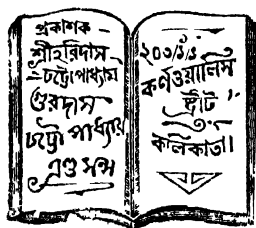 প্রকাশক-
শ্রীহরিদাস
চট্টোপাধ্যায়
গুরদাস
চট্টোপাধ্যায়
এণ্ড সন্স
২০৩/১/১
কর্ণওয়ালিস
ষ্ট্রীট
কলিকাতা।